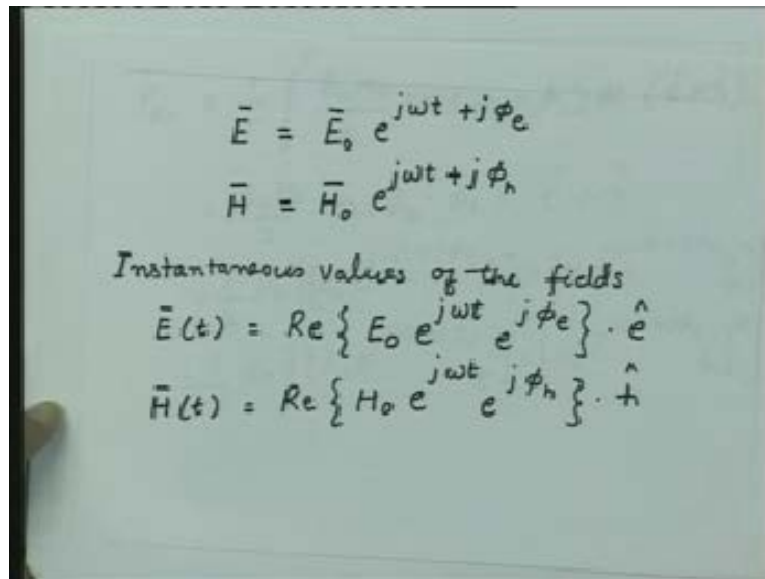 Ē = Ē₀ e^{jωt + jφ_e}
H̄ = H̄₀ e^{jωt + jφ_h}
Instantaneous values of the fields
Ē(t) = Re { E₀ e^{jωt} e^{jφ_e} } · ê
H̄(t) = Re { H₀ e^{jωt} e^{jφ_h} } · ĥ